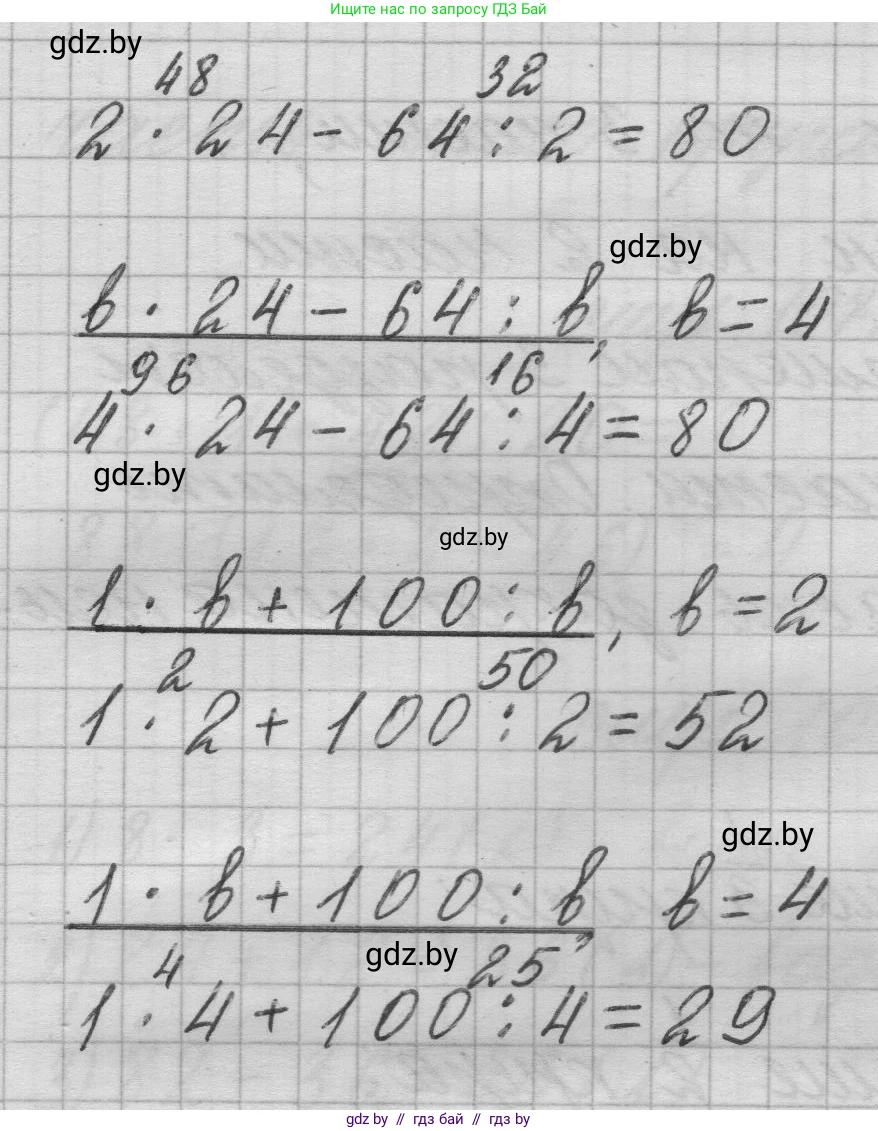 Ищите нас по запросу ГДЗ Бай
gdz.by
48 32
2 · 24 - 64 : 2 = 80
gdz.by
в · 24 - 64 : в, в = 4
96 16
4 · 24 - 64 : 4 = 80
gdz.by
gdz.by
1 · в + 100 : в, в = 2
2 50
1 · 2 + 100 : 2 = 52
gdz.by
1 · в + 100 : в, в = 4
gdz.by
4 25
1 · 4 + 100 : 4 = 29
gdz.by // гдз бай // гдз by